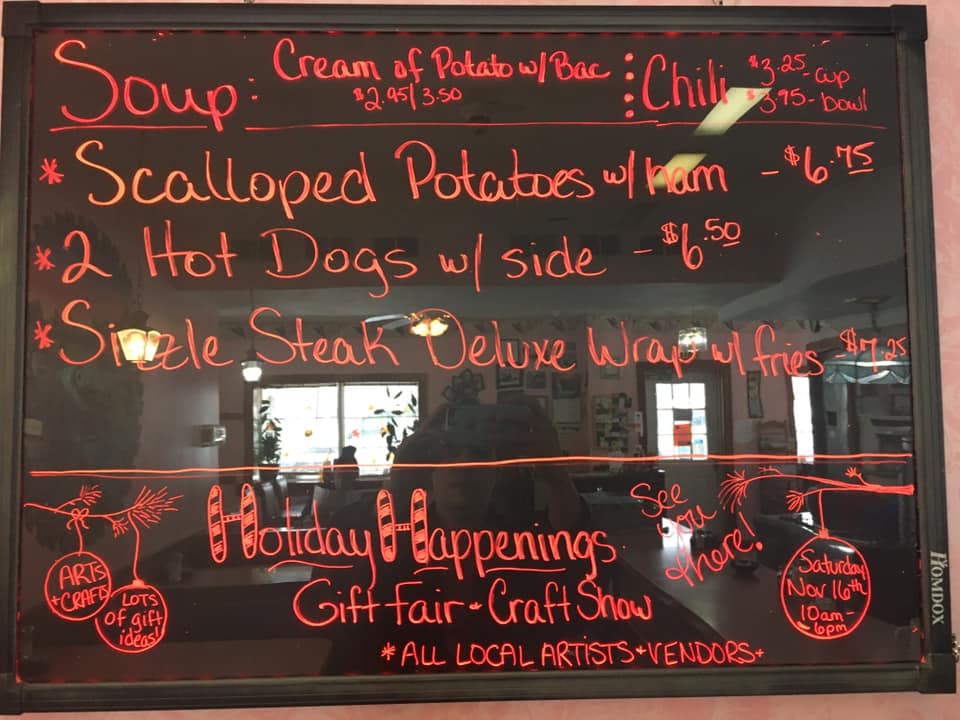 Soup: Cream of Potato w/ Bac
$2.95/3.50
Chili $3.25-cup
$3.95-bowl
* Scalloped Potatoes w/ ham - $6.75
* 2 Hot Dogs w/ side - $6.50
* Sizzle Steak Deluxe Wrap w/ fries - $7.25
Holiday Happenings
Gift Fair + Craft Show
* ALL LOCAL ARTISTS + VENDORS +
See
you
there!
ARTS
+ CRAFTS
LOTS
of gift
ideas!
Saturday
Nov 16th
10am-
6pm
HOMDOX